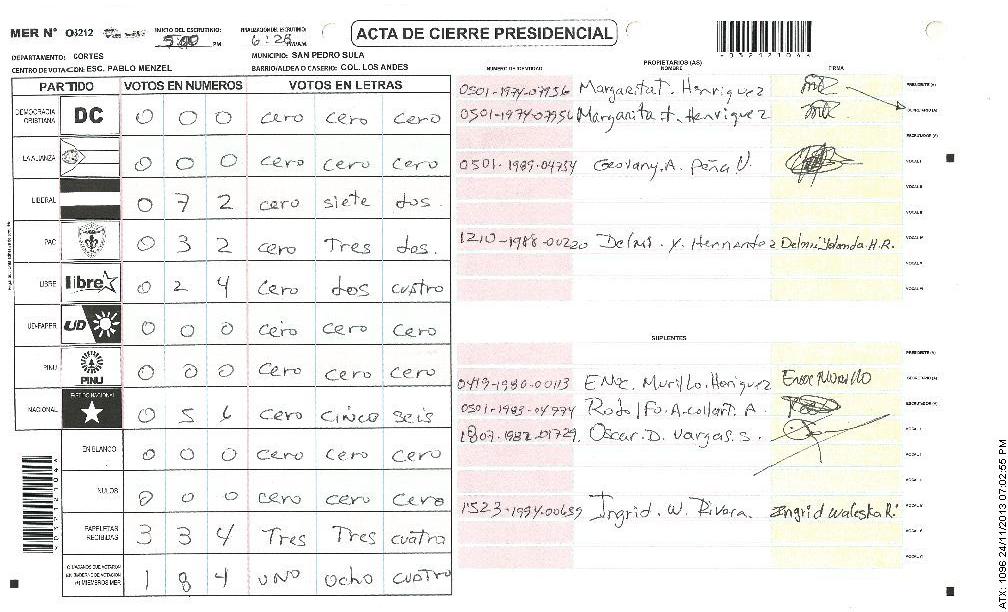 MER N° 03212
INICIO DEL ESCRUTINIO: 5:00 PM
FINALIZACION DEL ESCRUTINIO: 6:28
ACTA DE CIERRE PRESIDENCIAL
DEPARTAMENTO: CORTES
MUNICIPIO: SAN PEDRO SULA
CENTRO DE VOTACION: ESC. PABLO MENZEL
BARRIO/ALDEA O CASERIO: COL. LOS ANDES
PARTIDO VOTOS EN NUMEROS VOTOS EN LETRAS
DEMOCRACIA CRISTIANA DC 0 0 0 cero cero cero
LA ALIANZA 0 0 0 cero cero cero
LIBERAL 0 7 2 cero siete dos.
PAC 0 3 2 cero Tres dos.
LIBRE libre 0 2 4 cero dos cuatro
UD-FAPER UD 0 0 0 cero cero cero
PINU PINU 0 0 0 cero cero cero
NACIONAL PARTIDO NACIONAL 0 5 6 cero cinco seis
EN BLANCO 0 0 0 cero cero cero
NULOS 0 0 0 cero cero cero
PAPELETAS RECIBIDAS 3 3 4 Tres Tres cuatro
1 8 4 uno ocho cuatro
PROPIETARIOS (AS)
NUMERO DE IDENTIDAD NOMBRE FIRMA
0501-1974-07956 Margarita t. Henriquez PRESIDENTE (A)
0501-1974-07956 Margarita t. Henriquez SECRETARIO (A)
ESCRUTADOR (A)
0501-1989-04754 Geovany. A. Peña V. VOCAL I
VOCAL II
VOCAL III
1210-1988-00220 Delmi. Y. Hernandez Delmi Yolanda H.R. VOCAL IV
VOCAL V
VOCAL VI
SUPLENTES
PRESIDENTE (A)
0419-1980-00113 Enoc. Murillo. Henriquez Enoc Murillo SECRETARIO (A)
0501-1983-04974 Rodolfo. A. collart. A. ESCRUTADOR (A)
1807-1982-01729. Oscar. D. Vargas. S. VOCAL I
1523-1994-00659 Ingrid. W. Rivera. Ingrid waleska R.
ATX: 1096 24/11/2013 07:02:55 PM